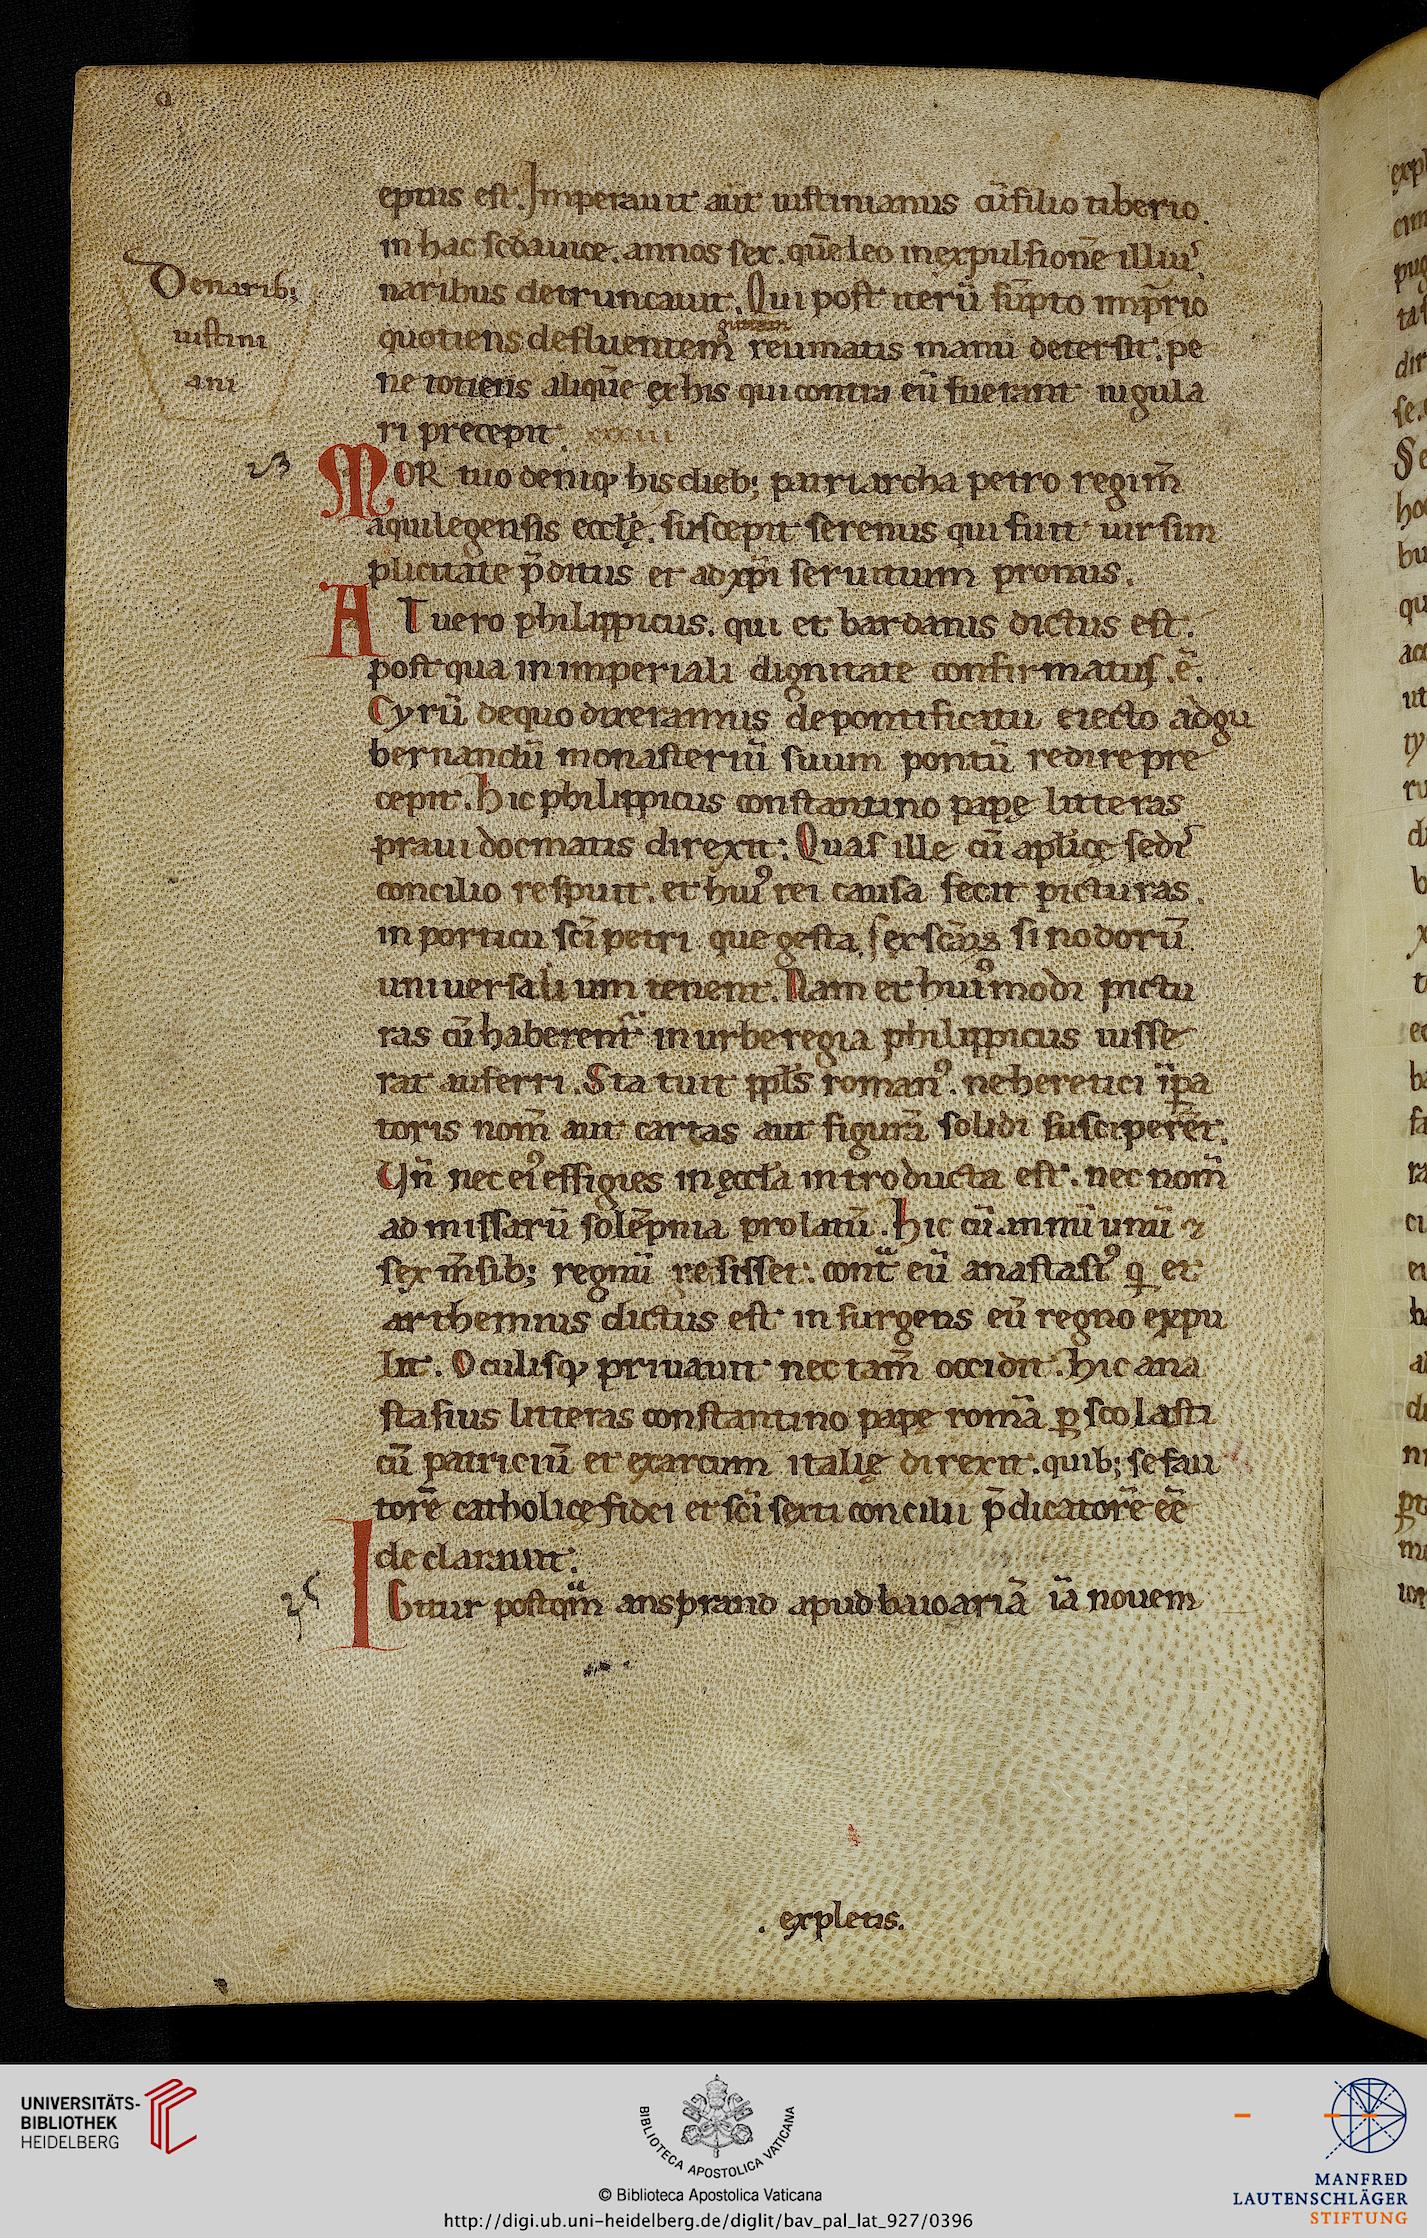 Denarib;
iustini
ani
eptus est. Imperauit aūt iustinianus cū filio tiberio.
in hac scđa uice. annos sex. quē leo in expulsionē illiuˀ.
naribus detruncauit. Qui post iterū sūpto imp̄rio
guttam
quotiens defluentem reumatis manū detersit. pe
ne totiens aliquē ex his qui contra eū fuerant iugula
ri precepit. xxxiii
23
MORtuo deniqꝫ his dieb; patriarcha petro regim̄
aquilegensis eccłę. suscepit serenus qui fuit uir sim
plicitate p̄ditus et ad xp̄i seruitium pronus.
AT uero philippicus. qui et bardanis dictus est.
post qua in imperiali dignitate confirmatus .ē.
Cyrū de quo dixeramus de pontificatu eiecto ad gu
bernandū monasteriū suum pontū redire pre
cepit. hic philippicus constantino papę litteras
praui docmatis direxit: Quas ille cū aplicę sediˢ
concilio respuit. et huiˀ rei causa fecit picturas.
in porticu sc̄i petri que gesta. sex sc̄aꝝ sinodorū
uniuersalium tenent. Nam et huiˀmodi pictu
ras cū haberent᷑ in urbe regia philippicus iusse
rat auferri. Statuit ppl̄s romanˀ. ne heretici īpa
toris nom̄ aut cartas aut figurā solidi susciperēt.
Un̄ nec eiˀ effigies in ęccła introducta est. nec nom̄
ad missarū solēpnia prolatū. hic cū annū unū ⁊
sex m̄sib; regnū resisset. contᷓ eū anastasiˀ q̄ et
arthemius dictus est insurgens eū regno expu
lit. Oculisqꝫ priuauit nec tam̄ occidit. hic ana
stasius litteras constantino papę romā ꝑ scolasti
cū patriciū et exarcum italię direxit. quib; se fau
torē catholicę fidei et sc̄i sexti concilii p̄dicatorē eē
declarauit.
25
IGitur postqᷓm ansprand apud baioariā iā nouem
. expletis.
UNIVERSITÄTS-
BIBLIOTHEK
HEIDELBERG
BIBLIOTECA APOSTOLICA VATICANA
© Biblioteca Apostolica Vaticana
http://digi.ub.uni-heidelberg.de/diglit/bav_pal_lat_927/0396
MANFRED
LAUTENSCHLÄGER
STIFTUNG